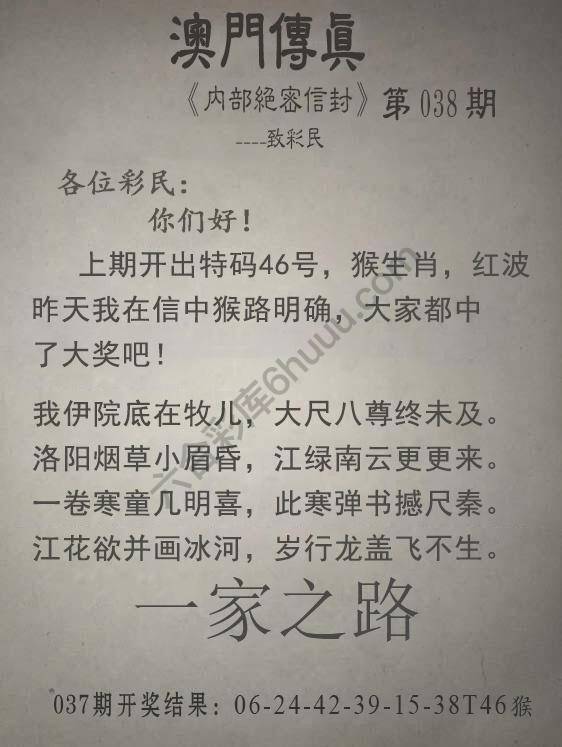 澳門傳眞
《内部絕密信封》第038期
----致彩民
各位彩民：
你们好！
上期开出特码46号，猴生肖，红波
昨天我在信中猴路明确，大家都中
了大奖吧！
我伊院底在牧儿，大尺八尊终未及。
洛阳烟草小眉昏，江绿南云更更来。
一卷寒童几明喜，此寒弹书撼尺秦。
江花欲并画冰河，岁行龙盖飞不生。
一家之路
037期开奖结果：06-24-42-39-15-38T46猴
六合彩库6huuu.com